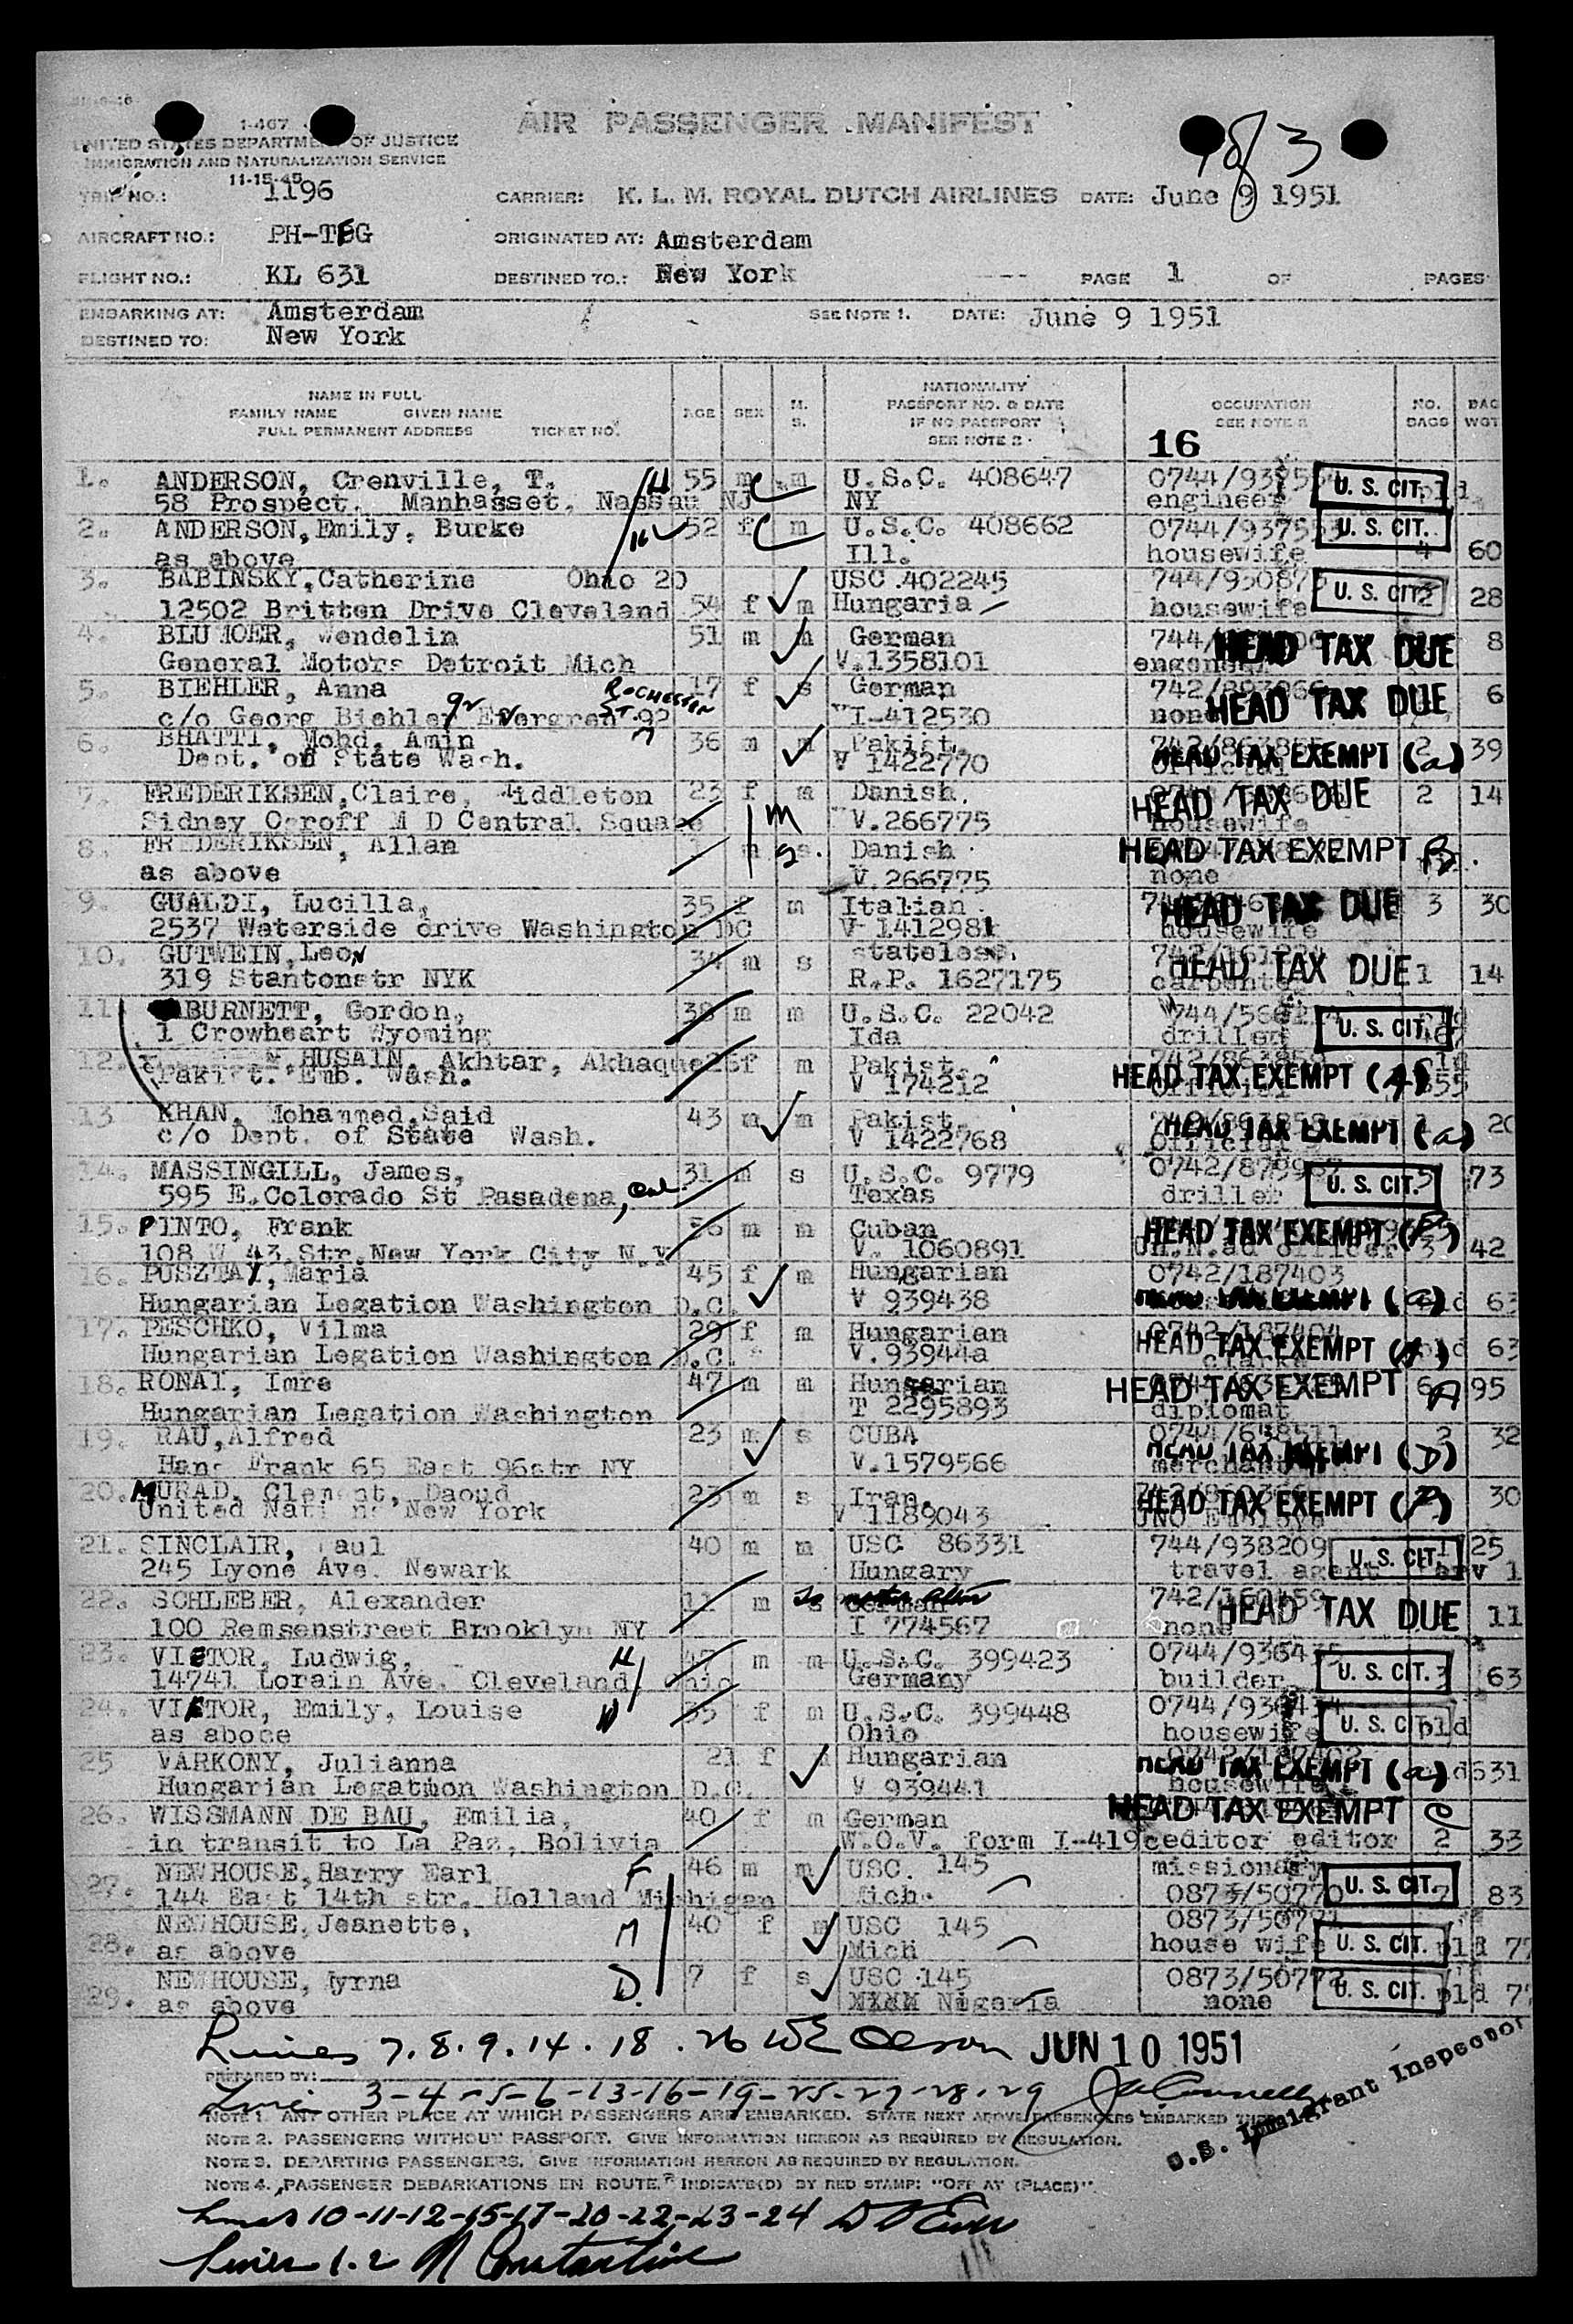 1-467
UNITED STATES DEPARTMENT OF JUSTICE
IMMIGRATION AND NATURALIZATION SERVICE
11-15-45
AIR PASSENGER MANIFEST
3
TRIP NO.: 1196 CARRIER: K. L. M. ROYAL DUTCH AIRLINES DATE: June 9 1951
AIRCRAFT NO.: PH-TEG ORIGINATED AT: Amsterdam
FLIGHT NO.: KL 631 DESTINED TO.: New York PAGE 1 OF PAGES
EMBARKING AT: Amsterdam SEE NOTE 1. DATE: June 9 1951
DESTINED TO: New York
NAME IN FULL
FAMILY NAME GIVEN NAME
FULL PERMANENT ADDRESS TICKET NO.
AGE SEX M. S.
NATIONALITY
PASSPORT NO. & DATE
IF NO PASSPORT
SEE NOTE 2
OCCUPATION
NO. BAGS
BAG WGT
16
1. ANDERSON, Crenville, T. 55 m m U.S.C. 408647 U. S. CIT.
58 Prospect, Manhasset, Nassau NJ NY engineer
2. ANDERSON,Emily, Burke 52 f m U.S.C. 408662 U. S. CIT.
as above Ill. housewife 4 60
3. BABINSKY,Catherine Ohio 20 USC 402245 U. S. CIT.
12502 Britten Drive Cleveland 54 f m Hungaria housewife 28
4. BLUMOER, Wendelin 51 m m German HEAD TAX DUE 8
General Motors Detroit Mich V.1358101
5. BIEHLER, Anna ROCHESTER 17 f s German HEAD TAX DUE 6
c/o Georg Biehler Evergreen ST. 92 I-412530 none
6. BHATTI, Mohd, Amin 36 m m Pakist. HEAD TAX EXEMPT (a) 2 39
Dept. of State Wash. V 1422770 official
7. FREDERIKSEN,Claire, Middleton 23 f m Danish. HEAD TAX DUE 2 14
Sidney Ogroff M D Central Square V.266775 housewife
8. FREDERIKSEN, Allan 1 m s. Danish HEAD TAX EXEMPT B.
as above V.266775 none
9. GUALDI, Lucilla, 35 f m Italian HEAD TAX DUE 3 30
2537 Waterside drive Washington DC V 1412981 housewife
10. GUTWEIN,Leon 34 m s stateless. HEAD TAX DUE 1 14
319 Stantonstr NYK R.P. 1627175
11. BURNETT, Gordon, 38 m m U.S.C. 22042 U. S. CIT.
1 Crowheart Wyoming Ida driller
12. HUSAIN, Akhtar, Akhaque 25 f m Pakist. HEAD TAX EXEMPT 55
Pakist. Emb. Wash. V 174212
13 KHAN, Mohammed,Said 43 m m Pakist. HEAD TAX EXEMPT (a) 20
c/o Dept. of State Wash. V 1422768 official
14. MASSINGILL, James, 31 m s U.S.C. 9779 U. S. CIT. 5 73
595 E.Colorado St Pasadena, Cal. Texas driller
15. PINTO, Frank m m Cuban HEAD TAX EXEMPT
108 W 43.Str.New York City N.Y V. 1060891 3 42
16. PUSZTAI,Maria 45 f m Hungarian 0742/187403
Hungarian Legation Washington D.C. V 939438 (a) 63
17. PESCHKO, Vilma 29 f m Hungarian HEAD TAX EXEMPT 63
Hungarian Legation Washington D.C. V.93944a
18. RONAI, Imre 47 m m Hungarian HEAD TAX EXEMPT A 6 95
Hungarian Legation Washington T 2295893 diplomat
19. RAU,Alfred 23 m s CUBA HEAD TAX EXEMPT (D) 32
Hans Frank 65 East 96str NY V.1579566 merchant
20. MURAD, Clement, Daoud 23 m s Iran. HEAD TAX EXEMPT 30
United Nations New York V 1189043
21. SINCLAIR, Paul 40 m m USC 86331 744/938209 U. S. CIT. 25
245 Lyons Ave. Newark Hungary travel agent
22. SCHLEBER, Alexander 11 m s HEAD TAX DUE 11
100 Remsenstreet Brooklyn NY I 774567 none
23. VIETOR, Ludwig, 47 m m U.S.C. 399423 0744/936435 U. S. CIT. 3
14741 Lorain Ave. Cleveland Ohio Germany builder 63
24. VIETOR, Emily, Louise 35 f m U.S.C. 399448 U. S. CIT. pld
as aboce Ohio housewife
25 VARKONY, Julianna 21 f Hungarian HEAD TAX EXEMPT (a)
Hungarian Legatmion Washington D.C. V 939441 housewife
26. WISSMANN DE BAU, Emilia, 40 f m German HEAD TAX EXEMPT C
in transit to La Paz, Bolivia W.O.V. form I-419 editor 2 33
27. NEWHOUSE,Harry Earl F 46 m m USC. 145 missionary U. S. CIT.
144 East 14th str. Holland Michigan Mich. 0873/50770 2 83
28. NEWHOUSE,Jeanette, M 40 f m USC 145 U. S. CIT.
as above Mich house wife pld 77
29. NEWHOUSE, Myrna D. 7 f s USC 145 0873/50772 U. S. CIT.
as above Nigeria none pld
Lines 7.8.9.14.18.26 JUN 10 1951
PREPARED BY:
Line 3-4-5-6-13-16-19-25-27-28-29
U.S. Immigrant Inspector
NOTE 1. ANY OTHER PLACE AT WHICH PASSENGERS ARE EMBARKED. STATE NEXT ABOVE PASSENGERS EMBARKED THERE
NOTE 2. PASSENGERS WITHOUT PASSPORT. GIVE INFORMATION HEREON AS REQUIRED BY REGULATION.
NOTE 3. DEPARTING PASSENGERS. GIVE INFORMATION HEREON AS REQUIRED BY REGULATION.
NOTE 4. PASSENGER DEBARKATIONS EN ROUTE. INDICATE(D) BY RED STAMP: "OFF AT (PLACE)".
Lines 10-11-12-15-17-20-22-23-24
Lines 1.2 N Constantine